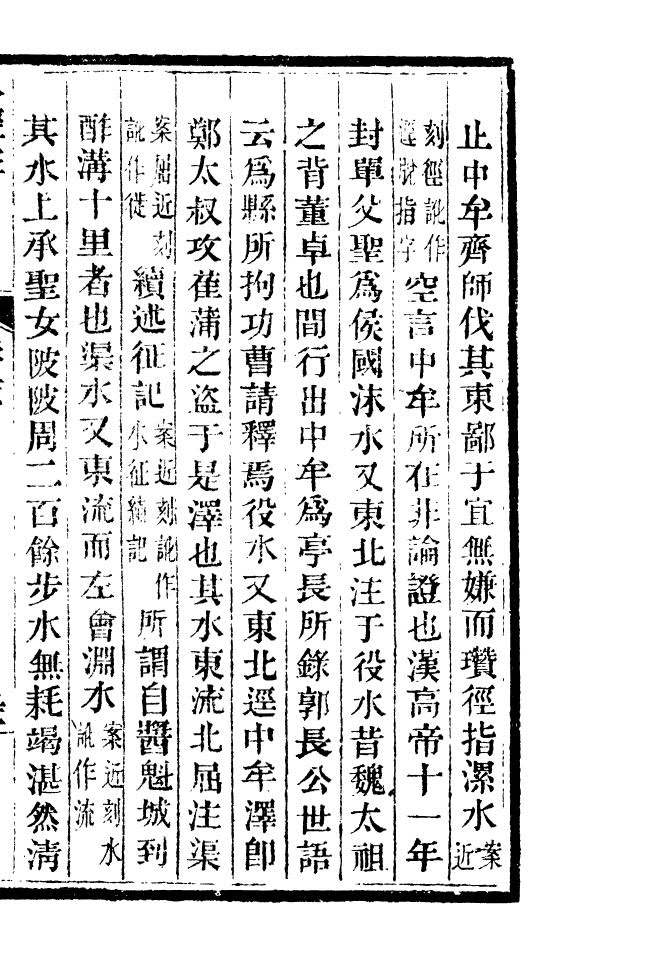 止中牟齊師伐其東鄙于宜無嫌而瓚徑指漯水案近
刻徑訛作逕於指字空言中牟所在非論證也漢高帝十一年
封單父聖爲侯國沫水又東北注于役水昔魏太祖
之背董卓也間行出中牟爲亭長所錄郭長公世語
云爲縣所拘功曹請釋焉役水又東北逕中牟澤卽
鄭太叔攻萑蒲之盜于是澤也其水東流北屈注渠
案屈近刻訛作徙續述征記案近刻訛作水征續記所謂自醬魁城到
酢溝十里者也渠水又東流而左會淵水案近刻水訛作流
其水上承聖女陂陂周二百餘步水無耗竭湛然清